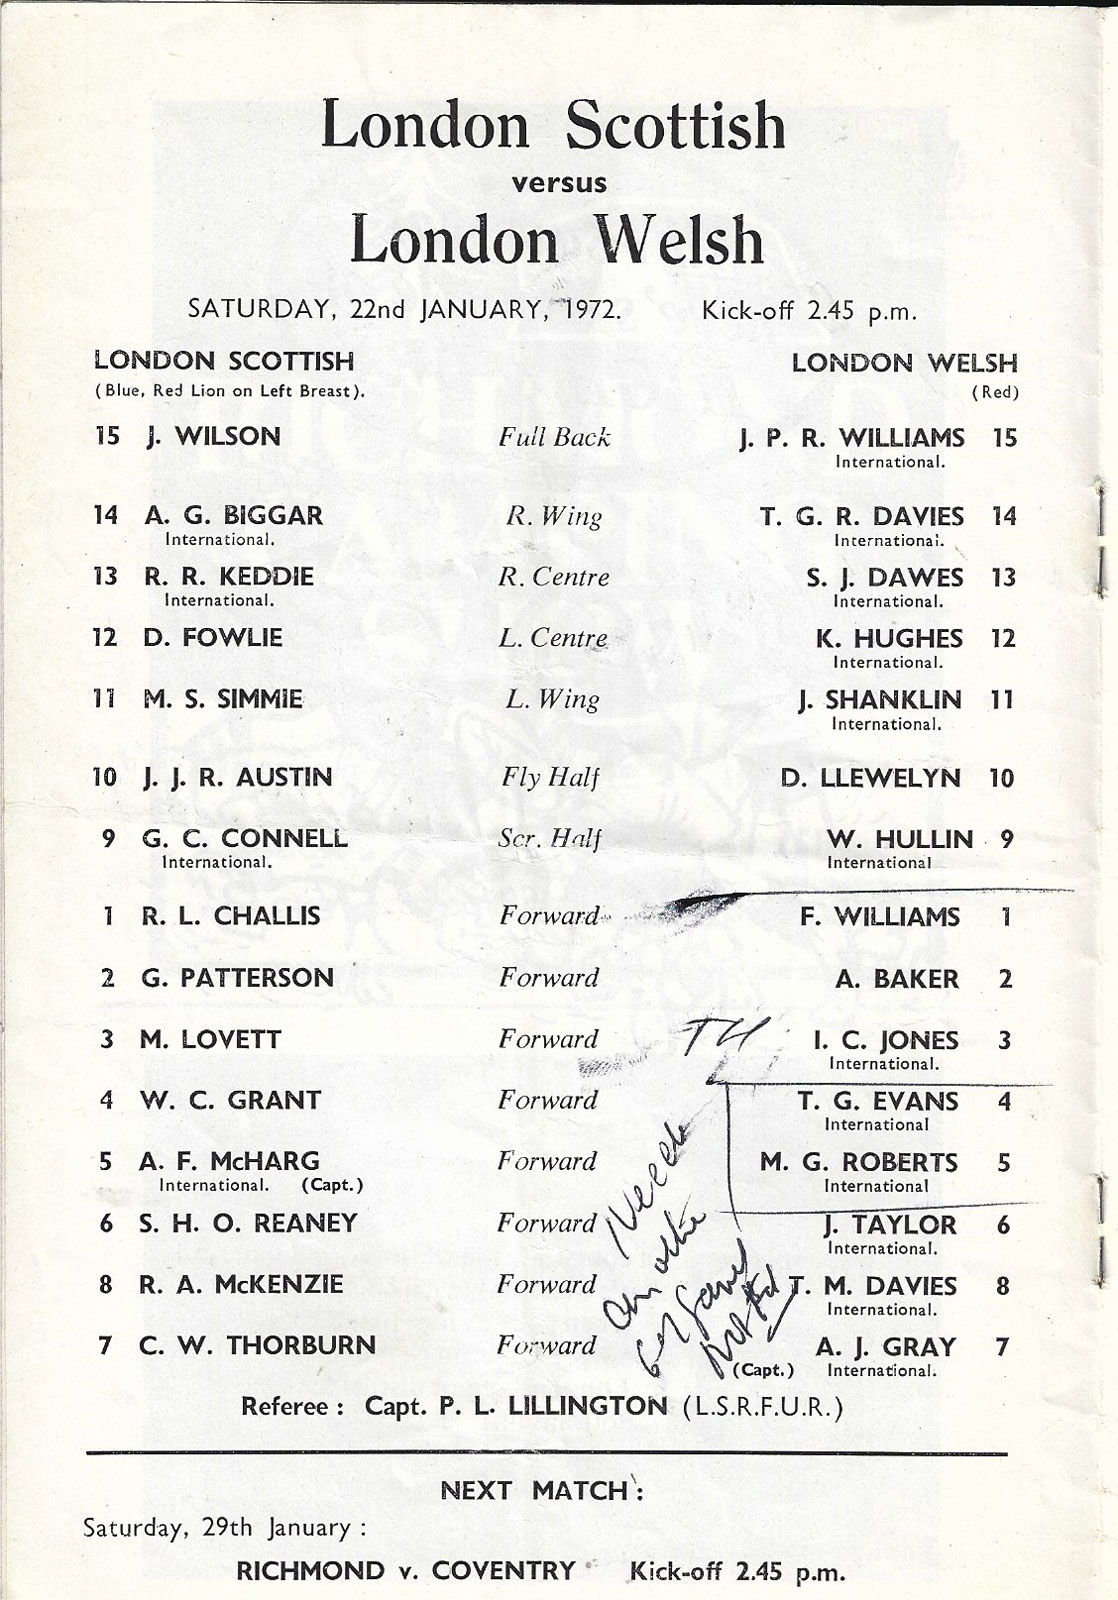 London Scottish
versus
London Welsh
SATURDAY, 22nd JANUARY, 1972. Kick-off 2.45 p.m.
LONDON SCOTTISH LONDON WELSH
(Blue, Red Lion on Left Breast). (Red)
15 J. WILSON Full Back J. P. R. WILLIAMS 15
International.
14 A. G. BIGGAR R. Wing T. G. R. DAVIES 14
International. International.
13 R. R. KEDDIE R. Centre S. J. DAWES 13
International. International.
12 D. FOWLIE L. Centre K. HUGHES 12
International.
11 M. S. SIMMIE L. Wing J. SHANKLIN 11
International.
10 J. J. R. AUSTIN Fly Half D. LLEWELYN 10
9 G. C. CONNELL Scr. Half W. HULLIN 9
International. International
1 R. L. CHALLIS Forward F. WILLIAMS 1
2 G. PATTERSON Forward A. BAKER 2
3 M. LOVETT Forward TH I. C. JONES 3
International.
4 W. C. GRANT Forward T. G. EVANS 4
International
5 A. F. McHARG Forward M. G. ROBERTS 5
International. (Capt.) International
6 S. H. O. REANEY Forward J. TAYLOR 6
International.
8 R. A. McKENZIE Forward T. M. DAVIES 8
International.
7 C. W. THORBURN Forward A. J. GRAY 7
(Capt.) International.
Referee : Capt. P. L. LILLINGTON (L.S.R.F.U.R.)
NEXT MATCH :
Saturday, 29th January :
RICHMOND v. COVENTRY Kick-off 2.45 p.m.